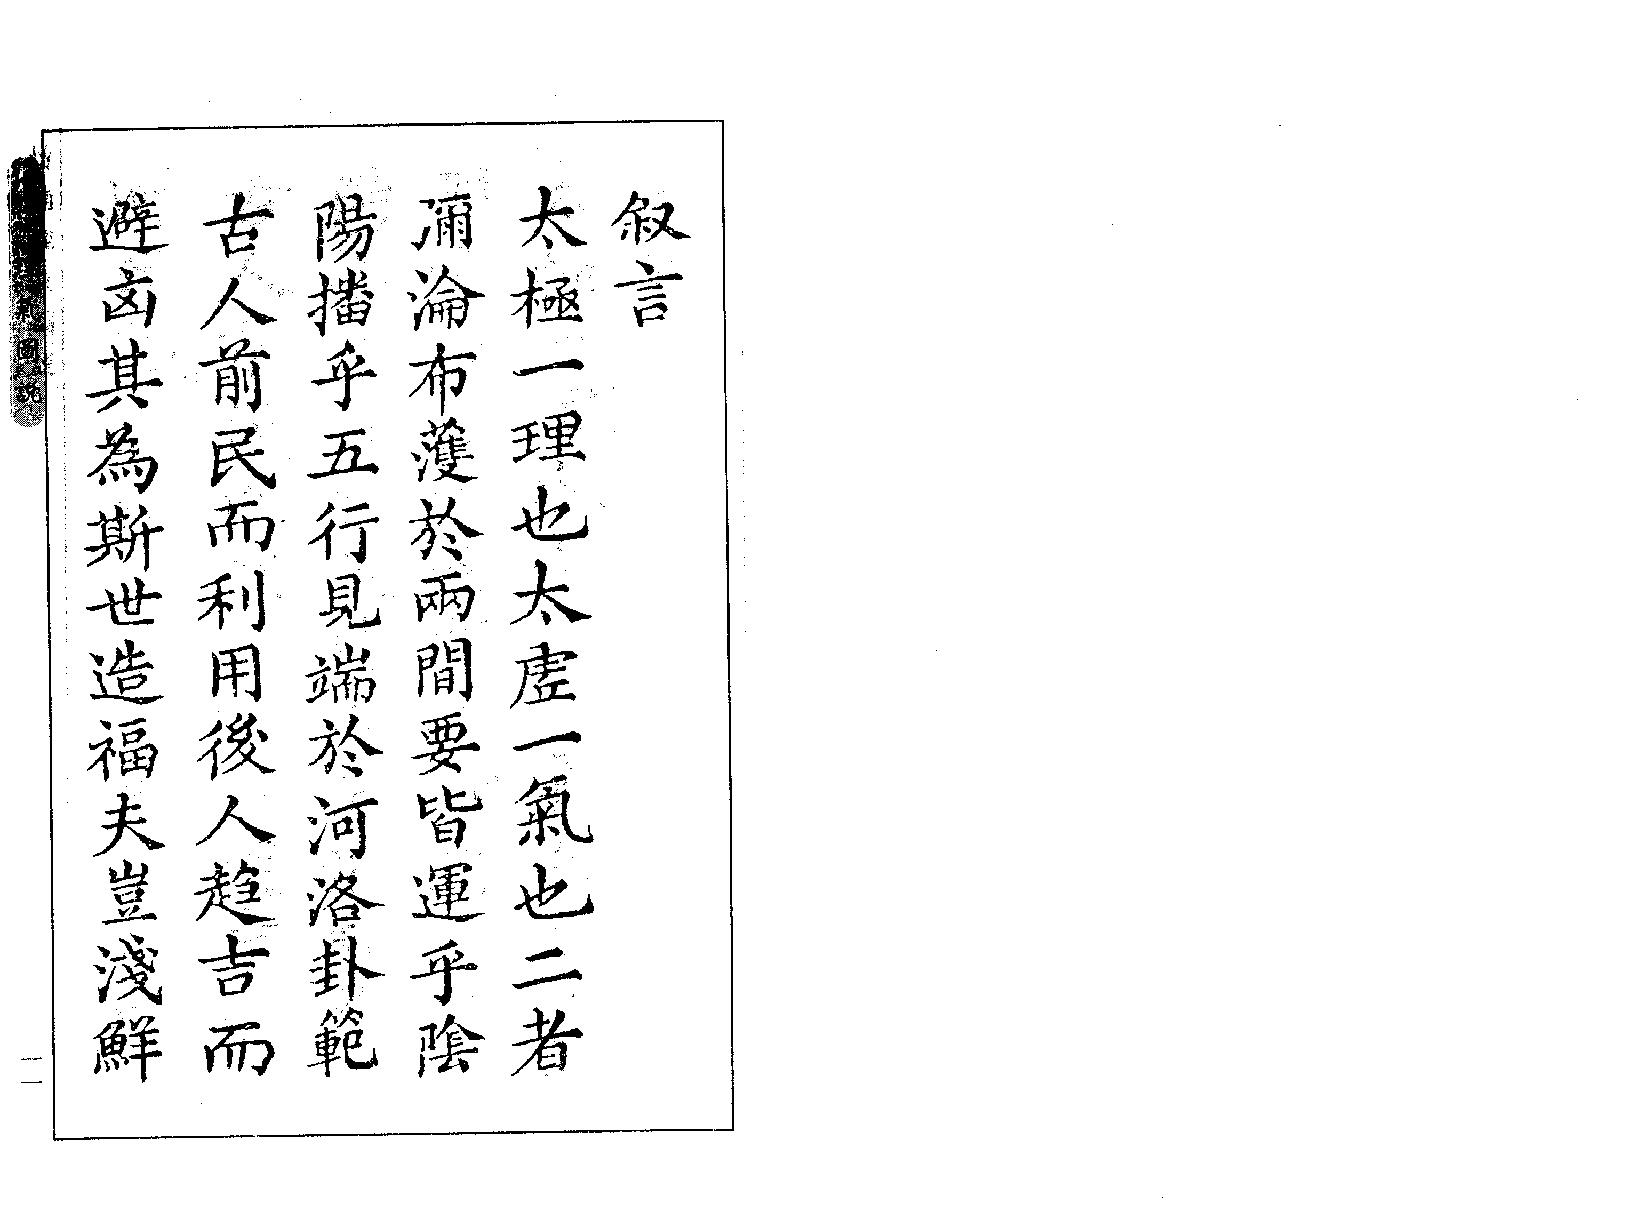 叙言
太極一理也太虛一氣也二者
彌淪布濩於兩間要皆運乎陰
陽播乎五行見端於河洛卦範
古人前民而利用後人趋吉而
避凶其為斯世造福夫豈淺鮮
氣圖說
一